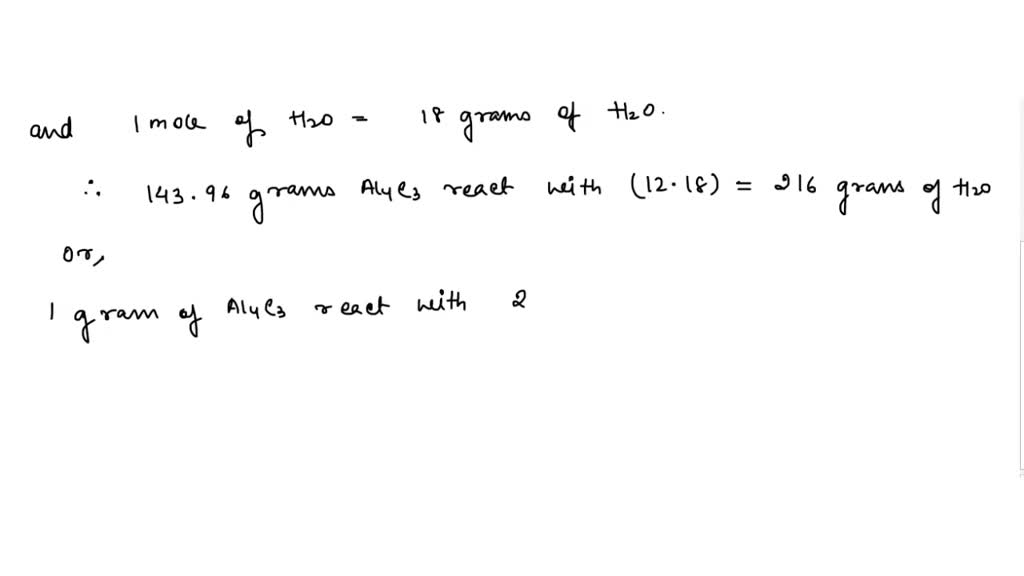 and 1 mole of H2O = 18 grams of H2O.
∴ 143.96 grams Al4C3 react with (12.18) = 216 grams of H2O
or,
1 gram of Al4C3 react with 2